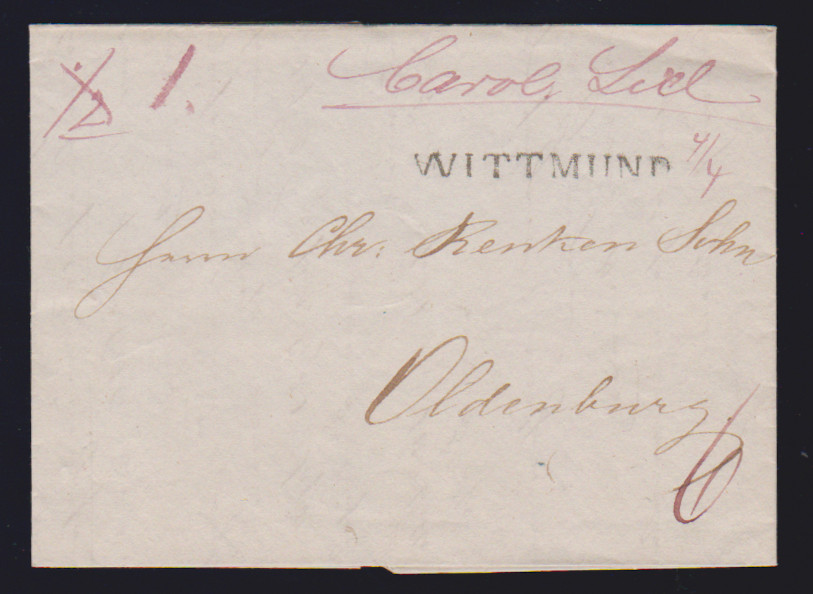 1. Carol. Siel
WITTMUND 4/4
Herrn Chr: Renken Sohn
Oldenburg.
6